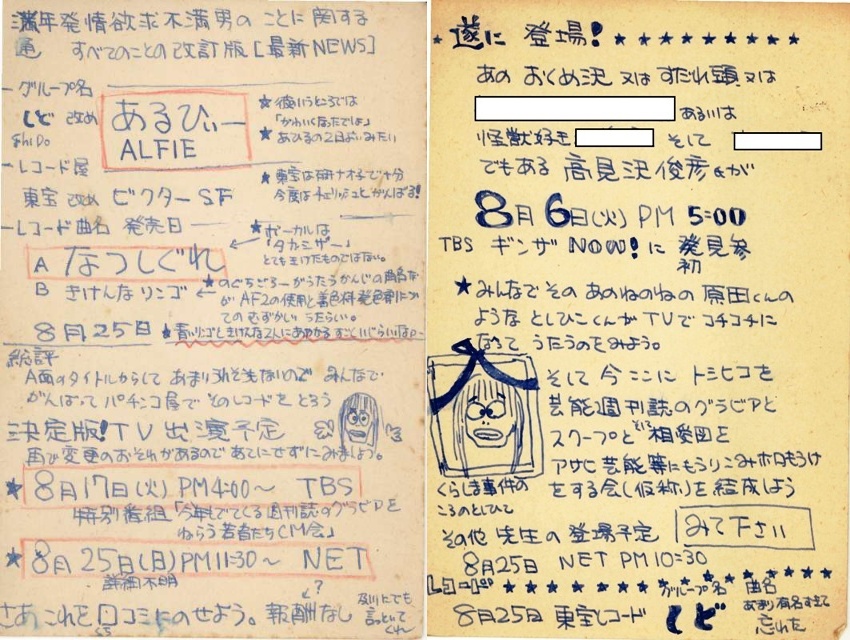 万年発情欲求不満男の ことに関する
すべてのことの改訂版[最新NEWS]
グループ名
しど 改め
ShiDo
あるひぃー
ALFIE
★彼いうところでは
「かわいくなったでしょ」
★あひるの2日よいみたい
レコード屋
東宝 改め ビクターSF
★東宝は研ナオ子で十分
今度はチェリッシュとがんばる!
レコード曲名 発売日
★ボーカルは
「タカミザー」
とても生けたものではない。
A なつしぐれ
B きけんなリンゴ
8月25日
総評
A面のタイトルからして あまり売れそもないので みんなで
がんばって パチンコ屋で そのレコードを とろう
決定版!TV出演予定
再び変更のおそれがあるので あてにせずにみましょう。
★8月17日(火) PM4:00〜 TBS
特別番組「今年もでてくる週刊誌のグラビアを
ねらう若者たちCM会」
★8月25日(日)PM11:30〜 NET
詳細不明
さあ、これを口コミにのせよう。報酬なし
くち
?
及川にでも
言っといて
くれ
★遂に 登場!★★★★★★★★★
あの おくめ沢 又は すだれ頭 又は
あるいは
怪獣好子 そして
でもある 高見沢俊彦もが
8月6日(火) PM 5:00
TBS ギンザ NOW!に 発見参
初
★みんなでその あのねのねの 原田くんの
ような としひこくんが TVで コチコチに
なって うたうのをみよう。
そして 今 ここに トシヒコを
芸能週刊誌のグラビアと
スクープと それに 相愛図を
アサヒ芸能等にもうりこみホロもうけ
をする会(仮称)を 結成しよう
くらしま事件の
ころのとしひこ
その他 先生の 登場予定
みて下さい
8月25日 NET PM10:30
レコード ★★★★★★★★ グループ名 曲名
8月25日 東宝レコード しど
あまり有名すぎて
忘れた